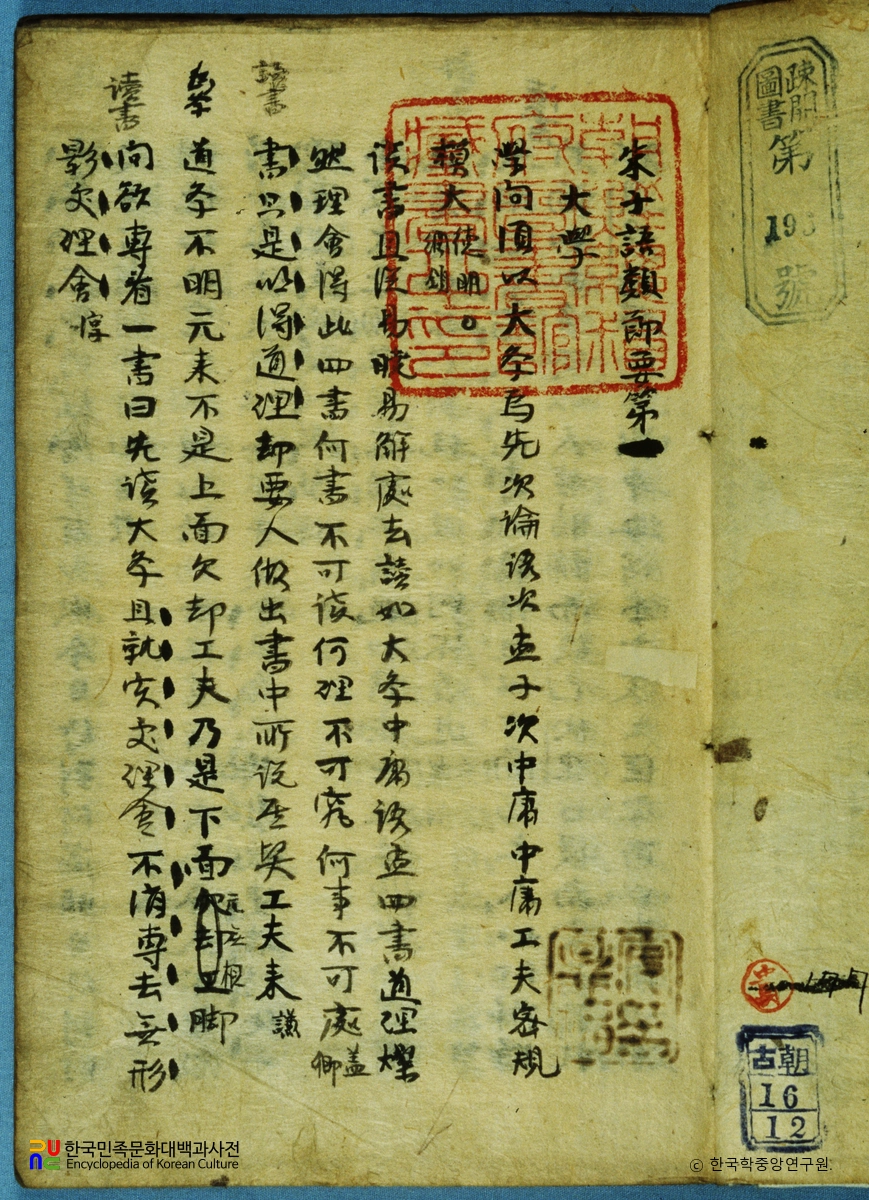 疎開
圖書
第
193
號
朝鮮總督府圖書館藏書之印
朱子語類節要第一
大學
學問須以大學爲先次論語次孟子次中庸中庸工夫密規
模大 德明
讀書且從易曉易解處去讀如大學中庸語孟四書道理燦
然理會得此四書何書不可讀何理不可究何事不可處 蓋卿
讀書
書只是明得道理却要人做出書中所說聖賢工夫來 謙
學
道學不明元來不是上面欠却工夫乃是下面元无根脚
讀書
問欲專看一書曰先讀大學且就实處理會不消專去無形
影處理會 淳
古朝
16
12
한국민족문화대백과사전
Encyclopedia of Korean Culture
ⓒ 한국학중앙연구원.